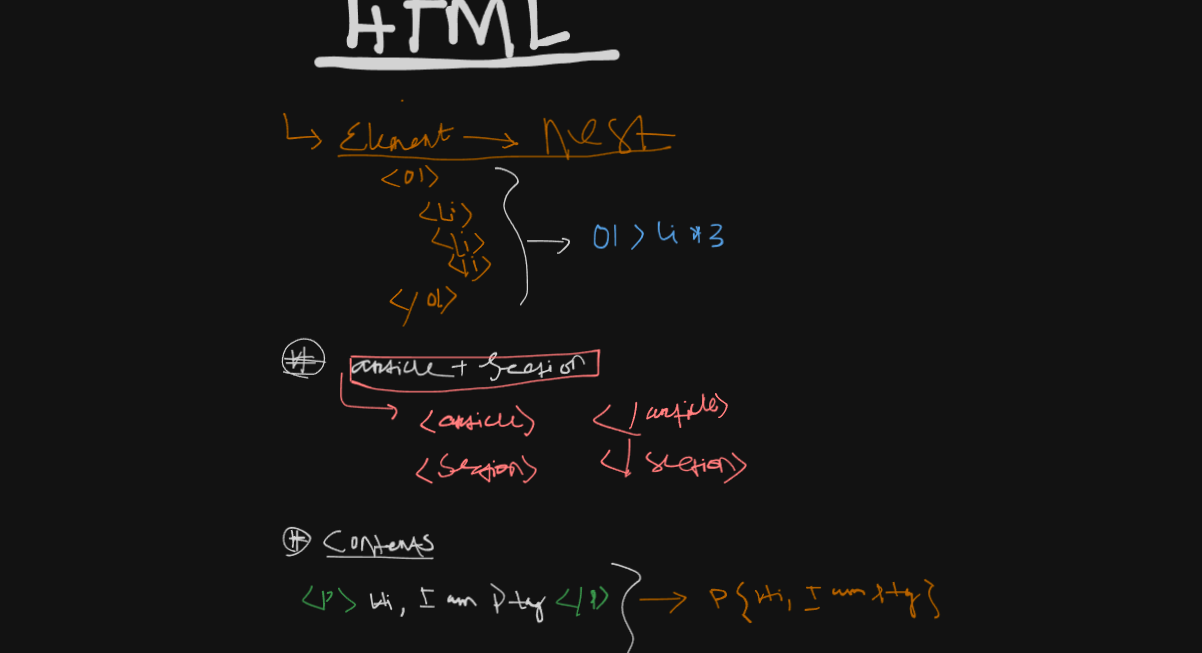 HTML
↳ Element → Nest
<ol>
<li>
<li>
<li>
</ol>
→ ol > li * 3
# article + section
<article> </article>
<section> </section>
# Contents
<p> Hi, I am P tag </p> → P{Hi, I am P tag}